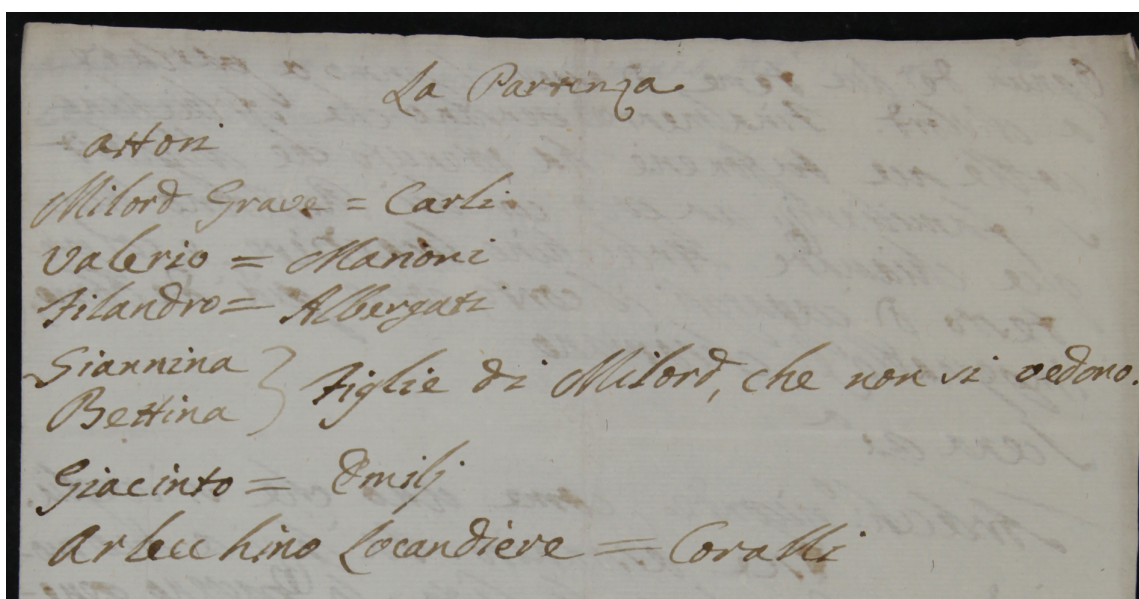 La Partenza
attori
Milord Grave = Carli
Valerio = Marioni
Filandro = Albergati
Giannina
Bettina } Figlie di Milord, che non si vedono.
Giacinto = Emilj
Arlecchino Locandiere = Coralli